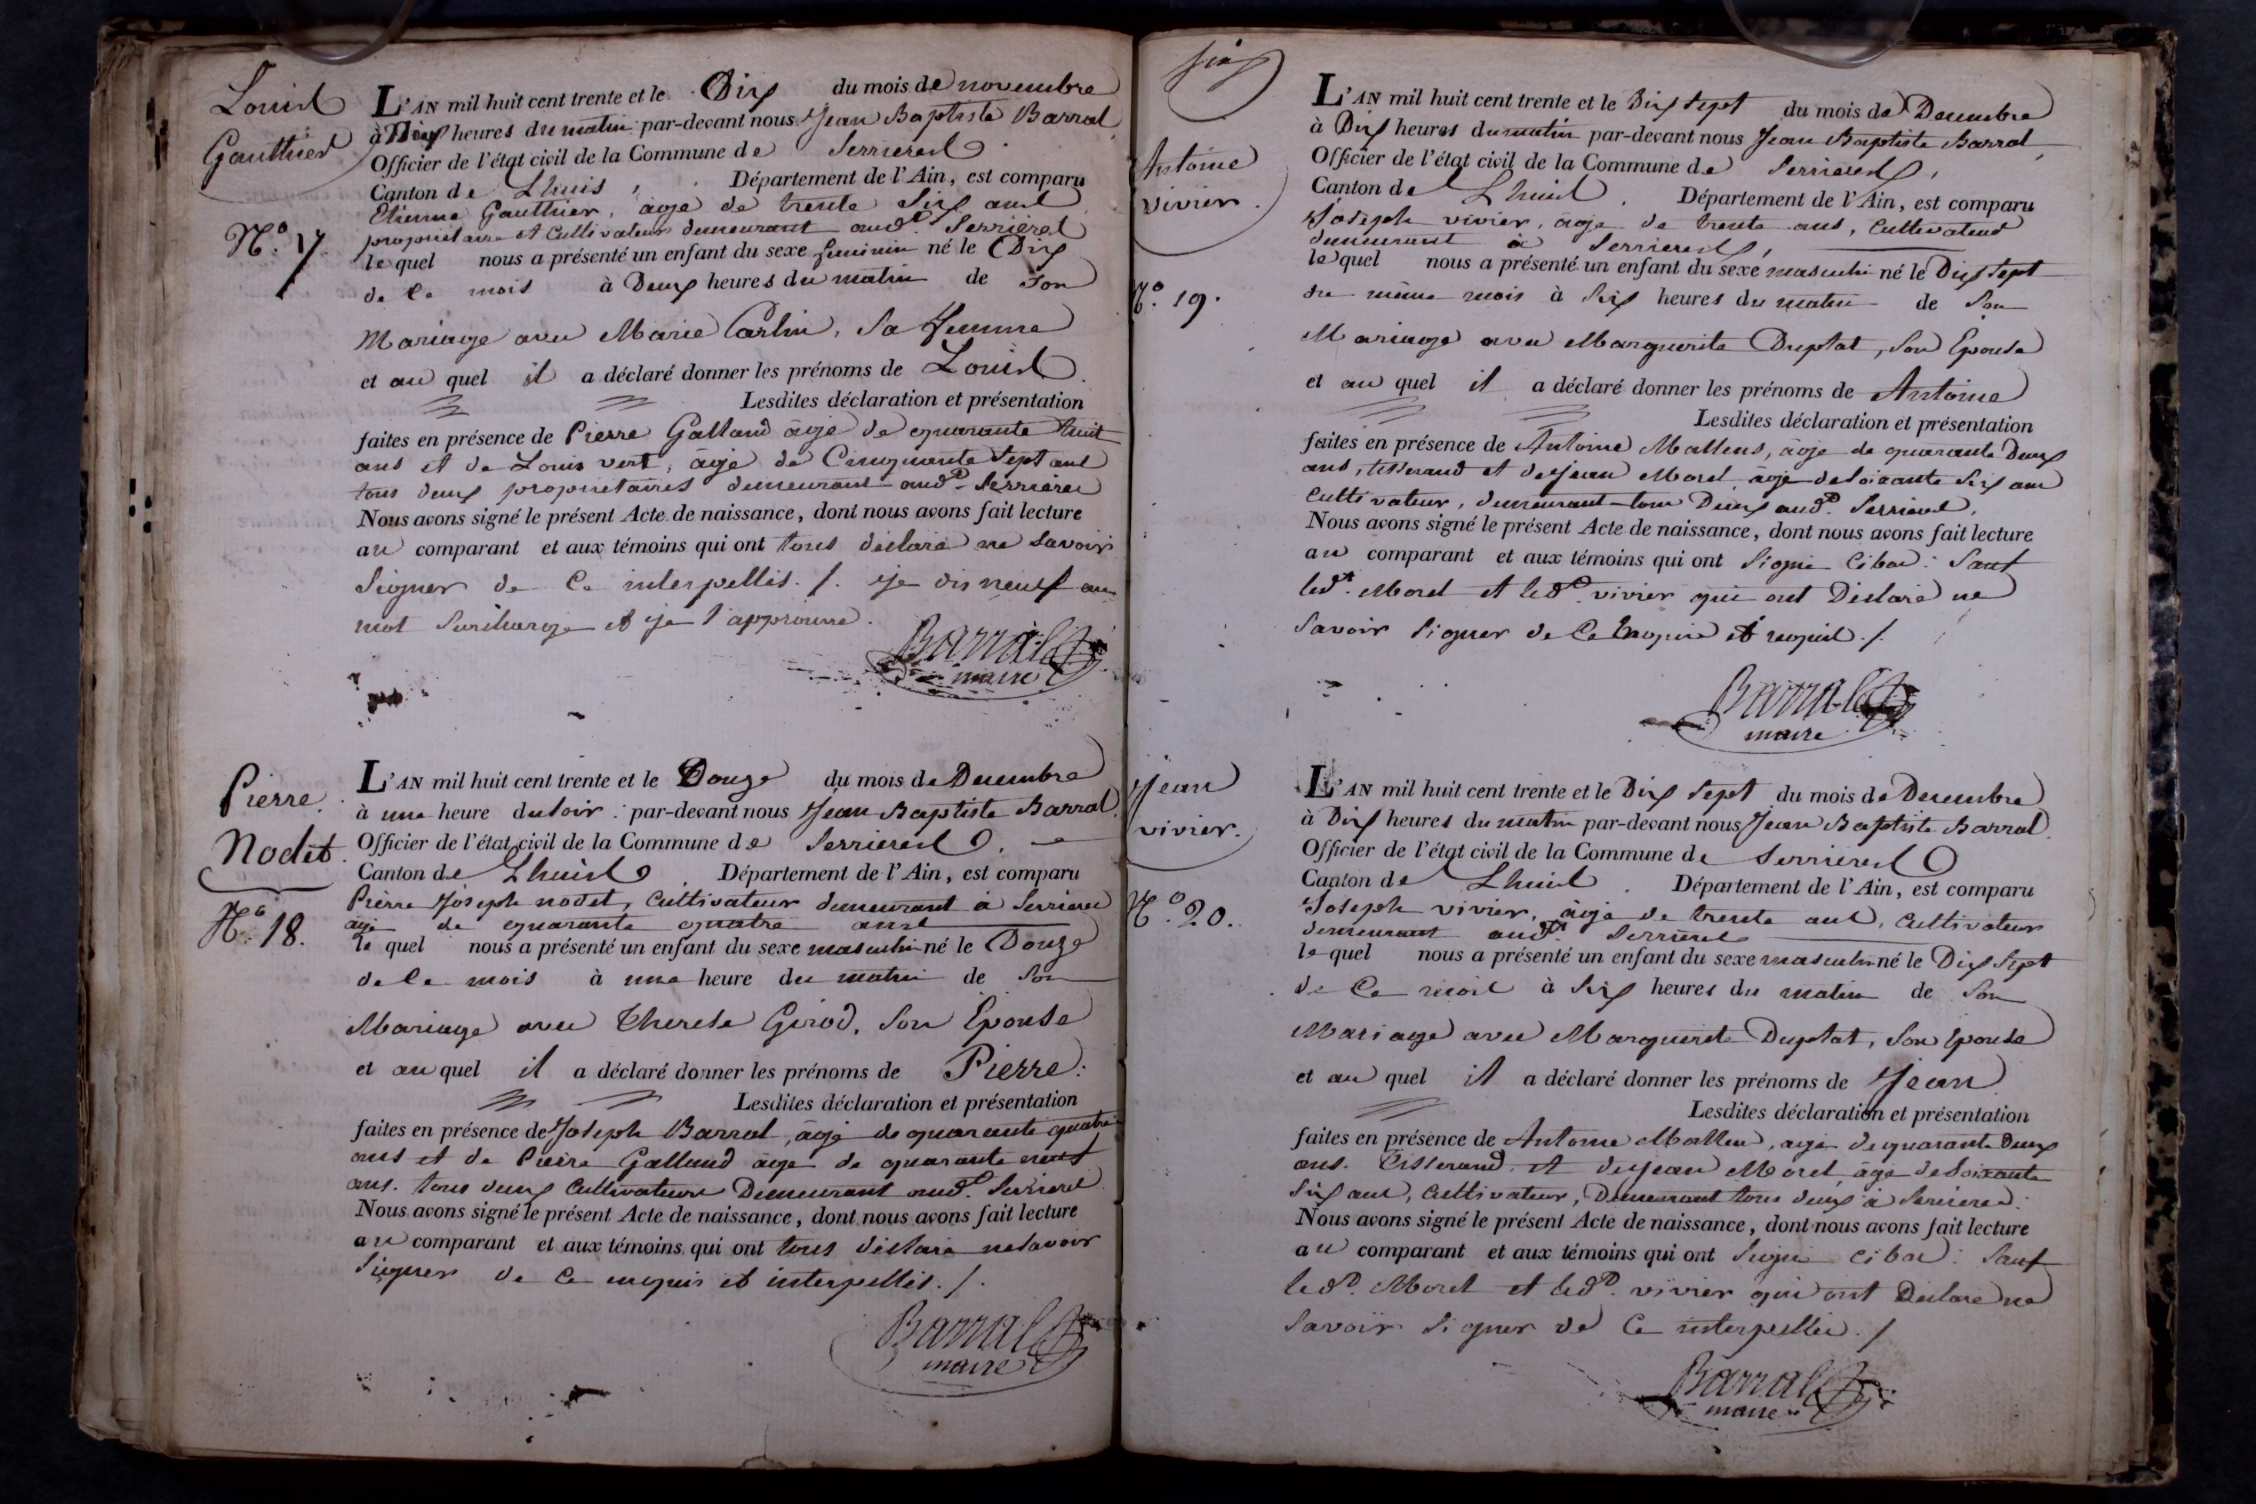 Louis
Gauthier
N.º 17
L'AN mil huit cent trente et le Dix du mois de novembre
à Dix heures du matin par-devant nous Jean Baptiste Barral
Officier de l'état civil de la Commune de Serrieres
Canton de Lhuis, Département de l'Ain, est comparu
Etienne Gauthier, âgé de trente Six ans
propriétaire et Cultivateur demeurant aud.t Serrieres
le quel nous a présenté un enfant du sexe feminin né le Dix
de Ce mois à Deux heures du matin de Son
Mariage avec Marie Carlin, Sa femme
et au quel il a déclaré donner les prénoms de Louis
Lesdites déclaration et présentation
faites en présence de Pierre Galland âgé de quarante huit
ans et de Louis vert, âgé de Cinquante Sept ans
tous deux propriétaires demeurant aud.t Serrieres
Nous avons signé le présent Acte de naissance, dont nous avons fait lecture
au comparant et aux témoins qui ont tous déclaré ne Savoir
Signer de Ce interpellés. /. je dis neuf au
mot Surchargé et je l'approuve.
Barral
maire
Pierre
Nodet.
N.º 18.
L'AN mil huit cent trente et le Douze du mois de Decembre
à une heure du soir par-devant nous Jean Baptiste Barral
Officier de l'état civil de la Commune de Serrieres.
Canton de Lhuis Département de l'Ain, est comparu
Pierre Joseph nodet, Cultivateur demeurant à Serrieres
âgé de quarante quatre ans
le quel nous a présenté un enfant du sexe masculin né le Douze
de Ce mois à une heure du matin de Son
Mariage avec Therese Girod, Son Epouse
et au quel il a déclaré donner les prénoms de Pierre.
Lesdites déclaration et présentation
faites en présence de Joseph Barral, âgé de quarante quatre
ans et de Pierre Galland âgé de quarante neuf
ans. tous deux Cultivateurs Demeurant aud.t Serrieres
Nous avons signé le présent Acte de naissance, dont nous avons fait lecture
au comparant et aux témoins qui ont tous déclaré ne Savoir
Signer de Ce enquis et interpellés. /.
Barral
maire
Antoine
vivier.
N.º 19.
L'AN mil huit cent trente et le Dix Sept du mois de Decembre
à Dix heures du matin par-devant nous Jean Baptiste Barral
Officier de l'état civil de la Commune de Serrieres,
Canton de Lhuis. Département de l'Ain, est comparu
Joseph vivier, âgé de trente ans, Cultivateur
demeurant à Serrieres,
le quel nous a présenté un enfant du sexe masculin né le Dix Sept
du même mois à Six heures du matin de Son
Mariage avec Marguerite Duplat, Son Epouse
et au quel il a déclaré donner les prénoms de Antoine
Lesdites déclaration et présentation
faites en présence de Antoine Mallens, âgé de quarante Deux
ans, tisserand et de Jean Morel âgé de Soixante Six ans
Cultivateur, demeurant tous Deux aud.t Serrieres.
Nous avons signé le présent Acte de naissance, dont nous avons fait lecture
au comparant et aux témoins qui ont Signé Cibas. Sauf
led.t Morel et led.t vivier qui ont Déclaré ne
Savoir Signer de Ce Enquis et requis. /.
Barral
maire
Jean
vivier.
N.º 20.
L'AN mil huit cent trente et le Dix Sept du mois de Decembre
à Dix heures du matin par-devant nous Jean Baptiste Barral
Officier de l'état civil de la Commune de Serrieres
Canton de Lhuis. Département de l'Ain, est comparu
Joseph vivier, âgé de trente ans, Cultivateur
demeurant aud.t Serrieres
le quel nous a présenté un enfant du sexe masculin né le Dix Sept
de Ce mois à Six heures du matin de Son
Mariage avec Marguerite Duplat, Son Epouse
et au quel il a déclaré donner les prénoms de Jean
Lesdites déclaration et présentation
faites en présence de Antoine Mallens, âgé de quarante Deux
ans. Tisserand et de Jean Morel, âgé de Soixante
Six ans, Cultivateur, Demeurant tous deux à Serrieres.
Nous avons signé le présent Acte de naissance, dont nous avons fait lecture
au comparant et aux témoins qui ont Signé Cibas. Sauf
led.t Morel et led.t vivier qui ont Déclaré ne
Savoir Signer de Ce interpellés. /
Barral
maire